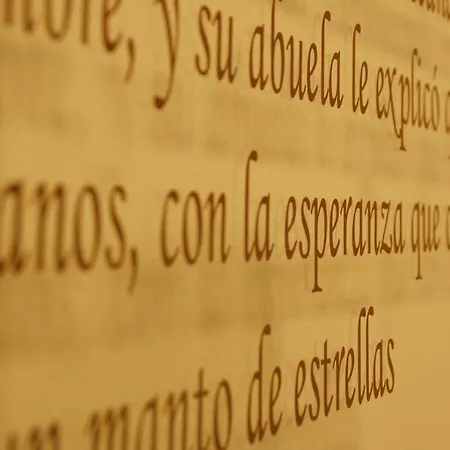 y su abuela le explicó
anos, con la esperanza que
un manto de estrellas